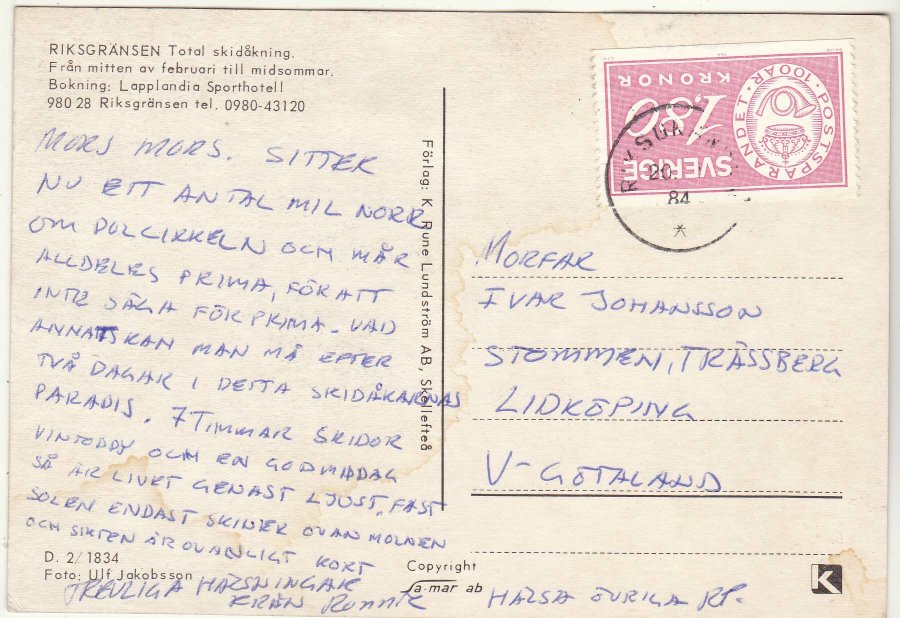 RIKSGRÄNSEN Total skidåkning.
Från mitten av februari till midsommar.
Bokning: Lapplandia Sporthotell
980 28 Riksgränsen tel. 0980-43120
MORS MORS. SITTER
NU ETT ANTAL MIL NORR
OM POLCIRKELN OCH MÅR
ALLDELES PRIMA, FÖR ATT
INTE SÄGA FÖR PRIMA. VAD
ANNAT KAN MAN MÅ EFTER
TVÅ DAGAR I DETTA SKIDÅKARNAS
PARADIS. 7 TIMMAR SKIDOR
VINTODDY OCH EN GOD MIDDAG
SÅ ÄR LIVET GENAST LJUST, FAST
SOLEN ENDAST SKINER OVAN MOLNEN
OCH SIKTEN ÄR OVANLIGT KORT
TREVLIGA HÄLSNINGAR
FRÅN
D. 2/1834
Foto: Ulf Jakobsson
Förlag: K. Rune Lundström AB, Skellefteå
Copyright
a-mar ab
POSTSPARANDET 100 ÅR
1.80
KRONOR
SVERIGE
20.
84
MORFAR
IVAR JOHANSSON
STOMMEN, TRÄSSBERG
LIDKÖPING
V-GÖTALAND
HÄLSA ÖVRIGA
K